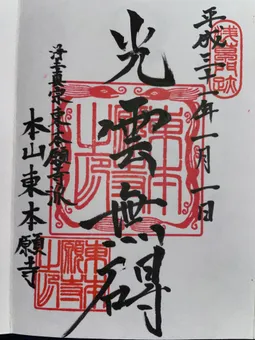 淺草門跡
平成三十一年一月一日
光雲無碍
浄土真宗東本願寺派
本山東本願寺